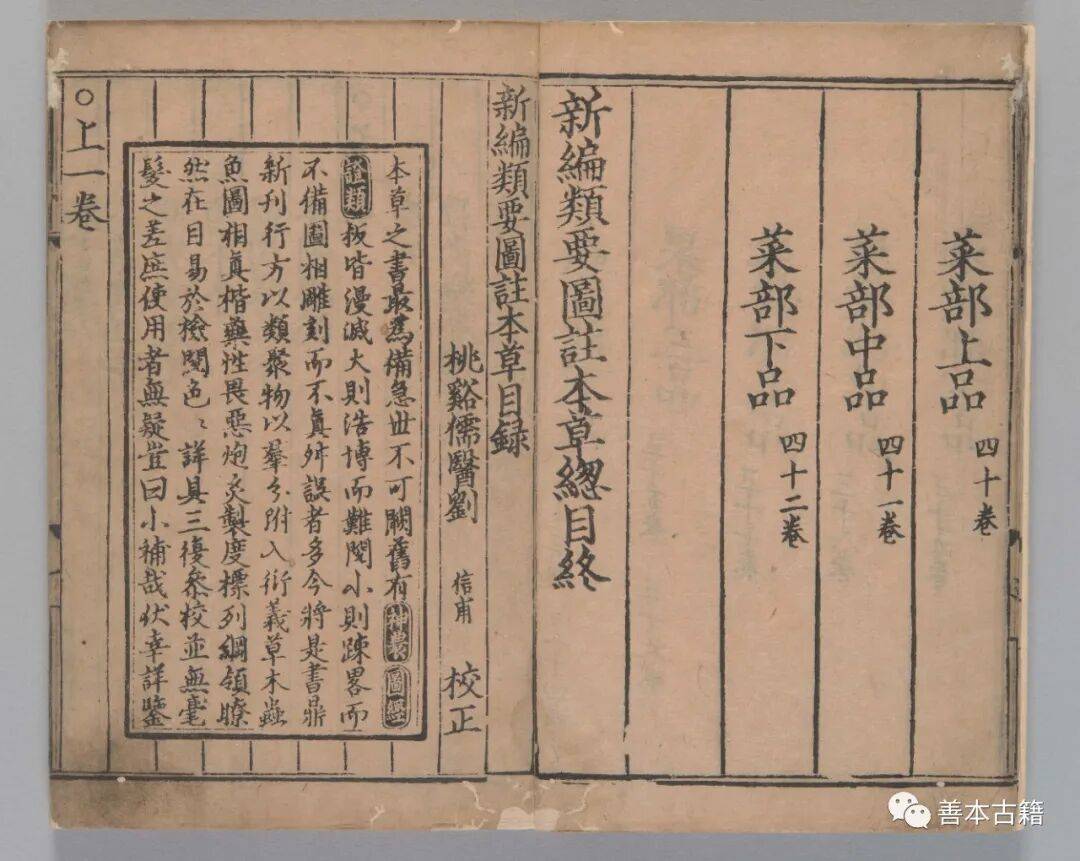 菜部上品 四十卷
菜部中品 四十一卷
菜部下品 四十二卷
新編類要圖註本草緫目終
新編類要圖註本草目録
桃谿儒醫劉 信甫 校正
本草之書最爲備急世不可闕舊有神農圖經
證類板皆漫滅大則浩博而難閱小則踈畧而
不備圖相雕刻而不真舛誤者多今將是書鼎
新刊行方以類聚物以羣分附入衍義草木蟲
魚圖相真楷藥性畏惡炮炙製度標列綱領瞭
然在目易於檢閱色〻詳具三復叅校並無毫
髮之差庶使用者無疑豈曰小補哉伏幸詳鑒
○上一卷
善本古籍